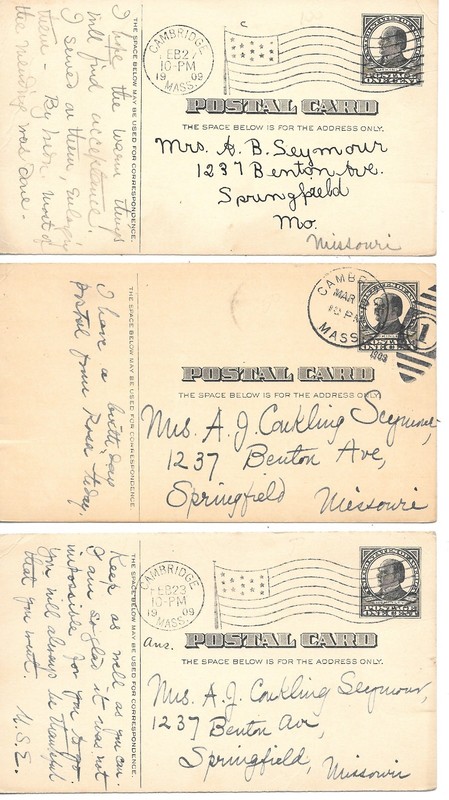 CAMBRIDGE
FEB 27
10-PM
19 09
MASS.
POSTAGE
ONE CENT
POSTAL CARD
THE SPACE BELOW IS FOR THE ADDRESS ONLY.
Mrs. A. B. Seymour
1237 Benton Ave.
Springfield
Mo.
Missouri
THE SPACE BELOW MAY BE USED FOR CORRESPONDENCE.
I hope the warm things
will find acceptance.
I sewed on them,
them - By him most of
the mending was done -
MAR
MASS.
1909
1
ONE CENT
POSTAL CARD
THE SPACE BELOW IS FOR THE ADDRESS ONLY
Mrs. A. J. Conkling Seymour,
1237 Benton Ave,
Springfield Missouri
THE SPACE BELOW MAY BE USED FOR CORRESPONDENCE.
I have a birthday
postal from Rosa today.
CAMBRIDGE
FEB 23
10-PM
19 09
MASS.
POSTAGE
ONE CENT
Ans.
POSTAL CARD
THE SPACE BELOW IS FOR THE ADDRESS ONLY.
Mrs. A. J. Conkling Seymour,
1237 Benton Ave,
Springfield, Missouri
THE SPACE BELOW MAY BE USED FOR CORRESPONDENCE.
Keep as well as you can.
I am so glad it was not
impossible for you to go.
You will always be thankful
that you went. U.S.E.